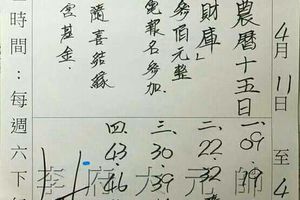 4月11日至4
農曆十五日
財庫」
參佰元整
報名參加.
隨喜結緣
宮基金.
時間：每週六下
一、09.19
二、22.32
三、30.39
四、43.46
李府九元帥